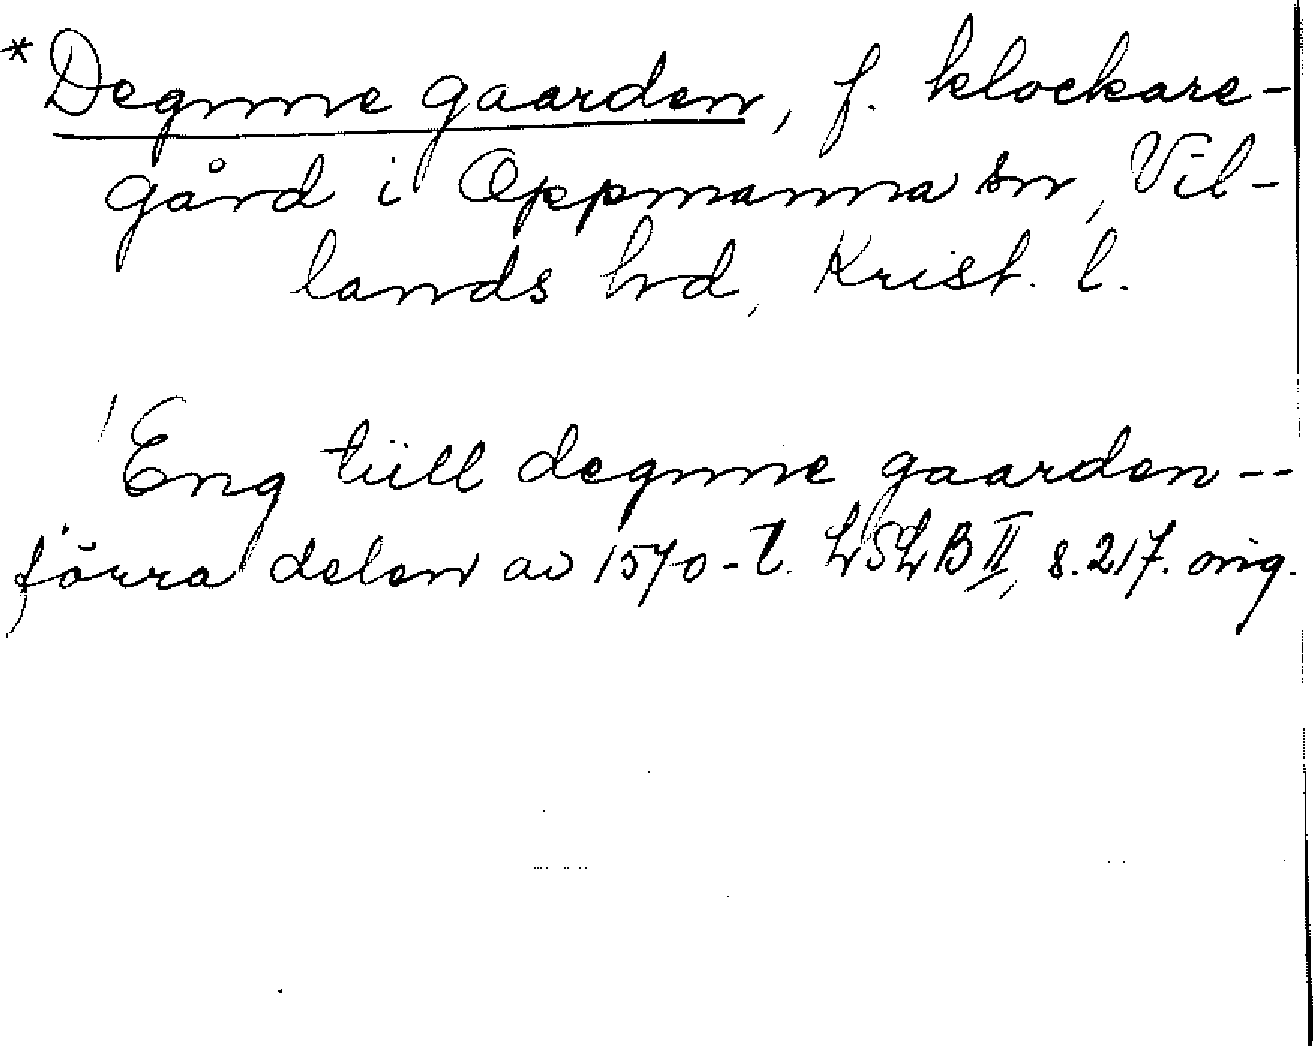 *Degnne gaarden, f. klockare-
gård i Oppmanna sn, Vil-
lands hd, Krist. l.
Eng tiill degnne gaarden--
förra delen av 1570-t. LSLB II, s. 217. orig.